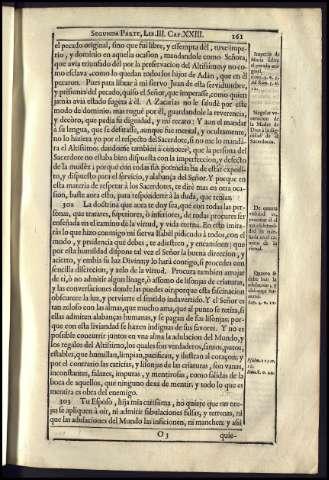 SEGUNDA PARTE, LIB. III. CAP. XXIII. 161
el pecado original, sino que fui libre, y essempta dèl, tuve impe-
rio, y dominio en aquella ocasion, mandandole como Señora,
que avia triunfado dèl por la preservacion del Altissimo, y no co-
mo esclava, como lo quedan todos los hijos de Adán, que en èl
pecaron. Pues para librar à mi siervo Juan de esta servidumbre,
y prisiones del pecado, quiso el Señor, que imperasse, como quien
jamás avia estado sugeta à èl. A Zacarias no le saludè por este
modo de dominio, mas roguè por èl, guardandole la reverencia,
y decòro, que pedia su dignidad, y mi recato: Y aun el mandar
à la lengua, que se desatasse, aunque fue mental, y ocultamente,
no lo hiziera yo por el respecto del Sacerdote, si no me lo mandà-
ra el Altissimo, dandome tambien à conocer, que la persona del
Sacerdote no estaba bien dispuesta con la imperfeccion, y defecto
de la mudèz; porque con todas sus potencias ha de estar expedi-
to, y dispuesto para el servicio, y alabança del Señor. Y porque en
esta materia de respetar à los Sacerdotes, te dirè mas en otra oca-
sion, baste aora esto, para responderte à la duda, que tenias.
302 La doctrina que aora te doy sea, que con todas las per-
sonas, que tratares, superiores, ò inferiores, de todas procures ser
enseñada en el camino de la virtud, y vida eterna. En esto imita-
rás lo que hizo conmigo mi sierva Isabèl, pidiendo à todos, con el
modo, y prudencia que debes, te adiestren, y encaminen: que
por esta humildad dispone tal vez el Señor la buena direccion, y
acierto, y embia su luz Divina; y lo hará contigo, si procedes con
sencilla discrecion, y zelo de la virtud. Procura tambien arrojar
de ti, ò no admitir algun linage, ò assomo de lisonjas de criaturas,
y las conversaciones donde las puedes oír; porque esta fascinacion
obscurece la luz, y pervierte el sentido inadvertido. Y el Señor es
tan zeloso con las almas, que mucho ama, que al punto se retira, si
ellas admiten alabanças humanas, y se pagan de sus lisonjas; por-
que con esta liviandad se hazen indignas de sus favores. Y no es
possible concurrir juntos en vna alma la adulacion del Mundo, y
los regalos del Altissimo, los quales son verdaderos, santos, puros,
estables, que humillan, limpian, pacifican, y ilustran al coraçon: y
por el contrario las caricias, y lisonjas de las criaturas, son vanas,
inconstantes, falaces, impuras, y mentirosas, como salidas de la
boca de aquellos, que ninguno dexa de mentir, y todo lo que es
mentira es obra del enemigo.
303 Tu Esposo, hija mia carissima, no quiere que tus ore-
jas se apliquen à oír, ni admitir fabulaciones falsas, y terrenas, ni
que las adulaciones del Mundo las inficionen, ni manchen; y assi
O 3 quie-